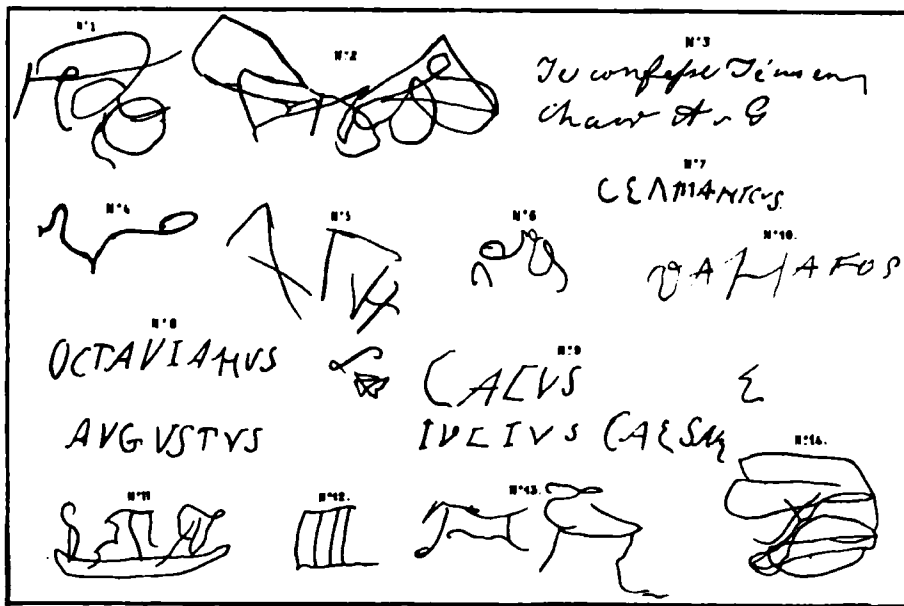 N°1
N°2
N°3
Je confesse Jésus en
chair
N°4
N°5
N°6
N°7
CEΛMANICVS.
N°10.
N°8
OCTAVIANVS
AVGVSTVS
N°9
IVLIVS CAESAR
N°11
N°12.
N°13.
N°14.